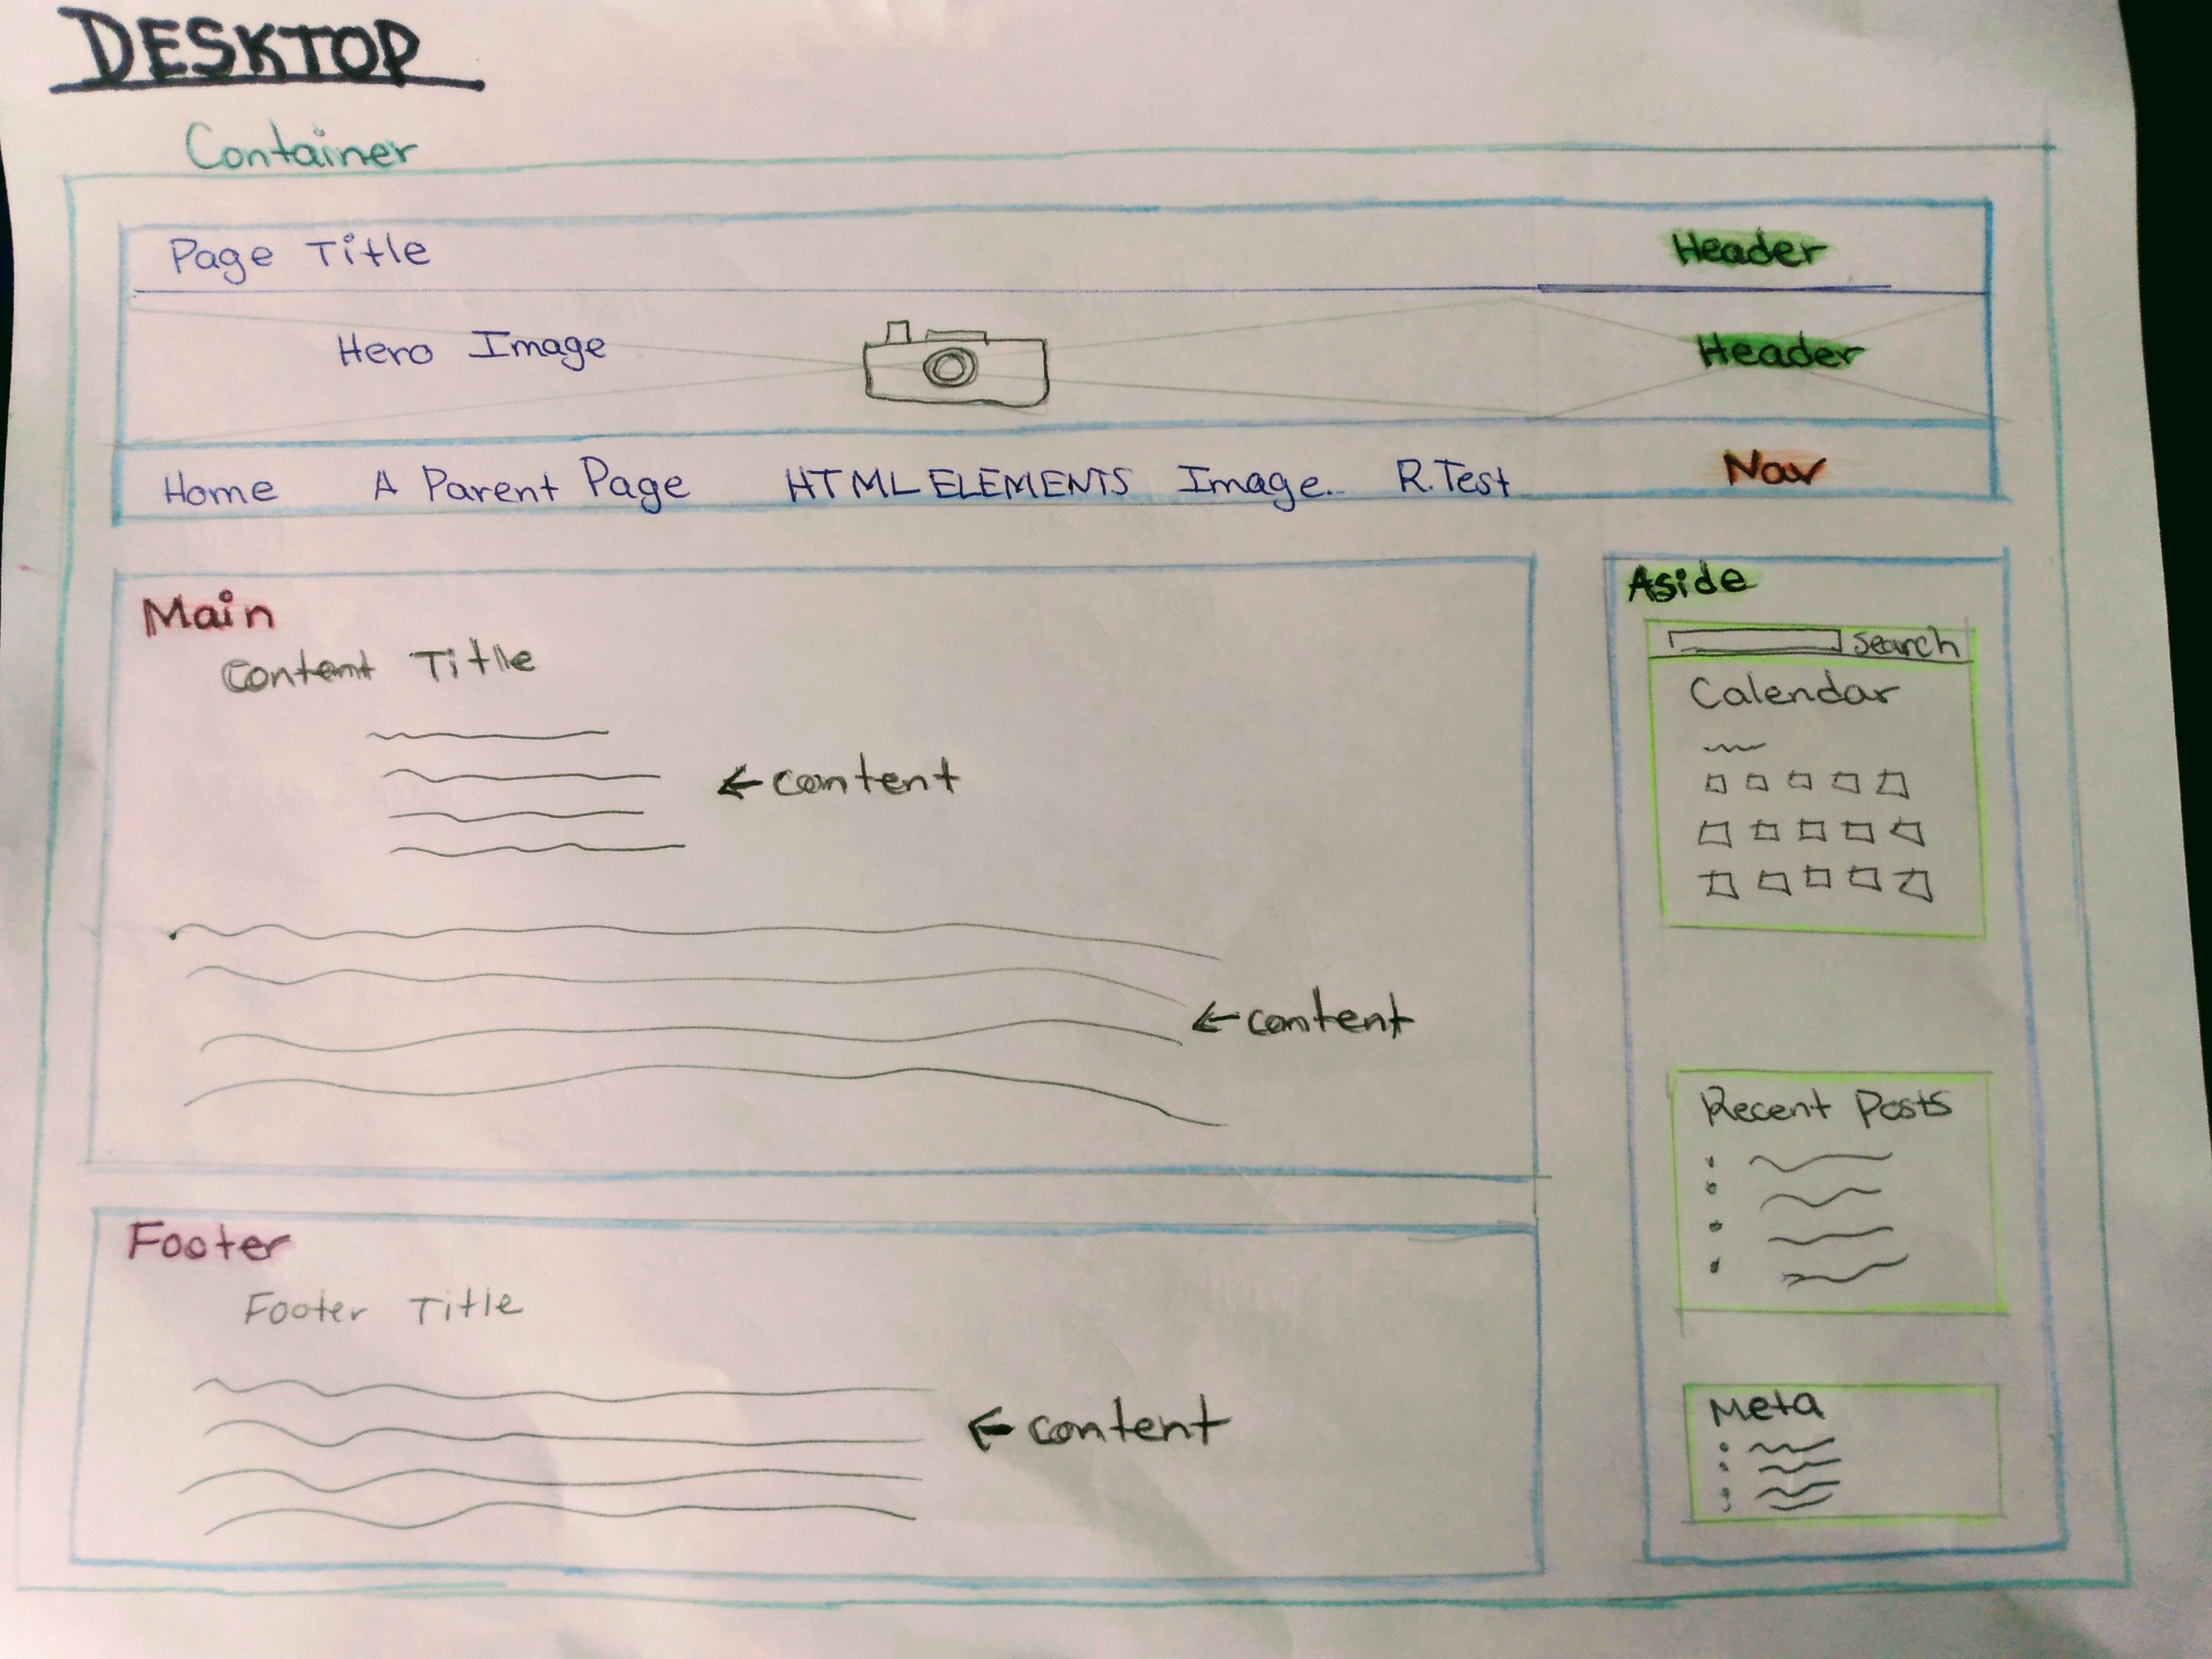 DESKTOP
Container
Page Title Header
Hero Image Header
Home A Parent Page HTML ELEMENTS Image.. R.Test Nav
Main
Content Title
← content
← content
Footer
Footer Title
← content
Aside
Search
Calendar
Recent Posts
Meta